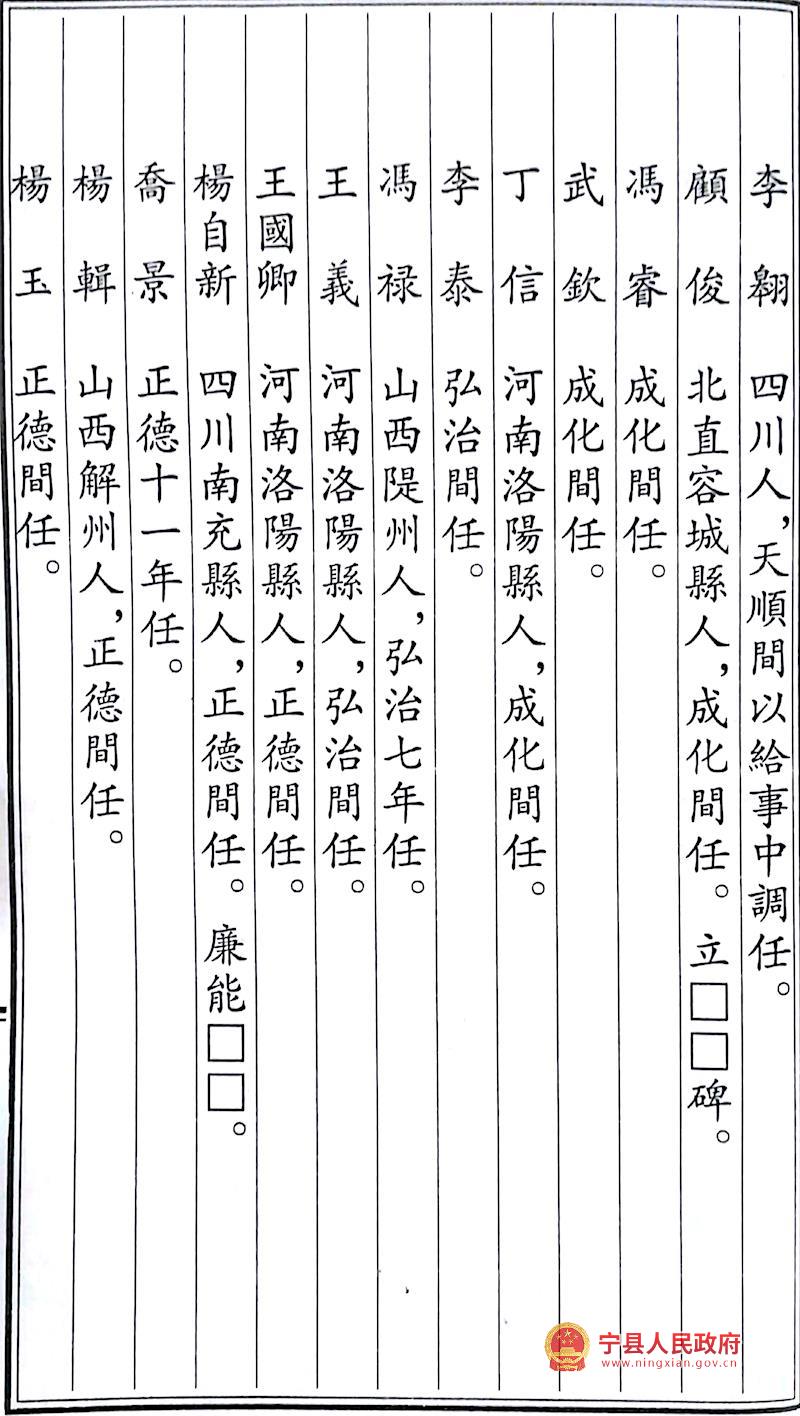 李翱 四川人，天順間以給事中調任。
顧俊 北直容城縣人，成化間任。立□□碑。
馮睿 成化間任。
武欽 成化間任。
丁信 河南洛陽縣人，成化間任。
李泰 弘治間任。
馮禄 山西隄州人，弘治七年任。
王義 河南洛陽縣人，弘治間任。
王國卿 河南洛陽縣人，正德間任。
楊自新 四川南充縣人，正德間任。廉能□□。
喬景 正德十一年任。
楊輯 山西解州人，正德間任。
楊玉 正德間任。
宁县人民政府
www.ningxian.gov.cn